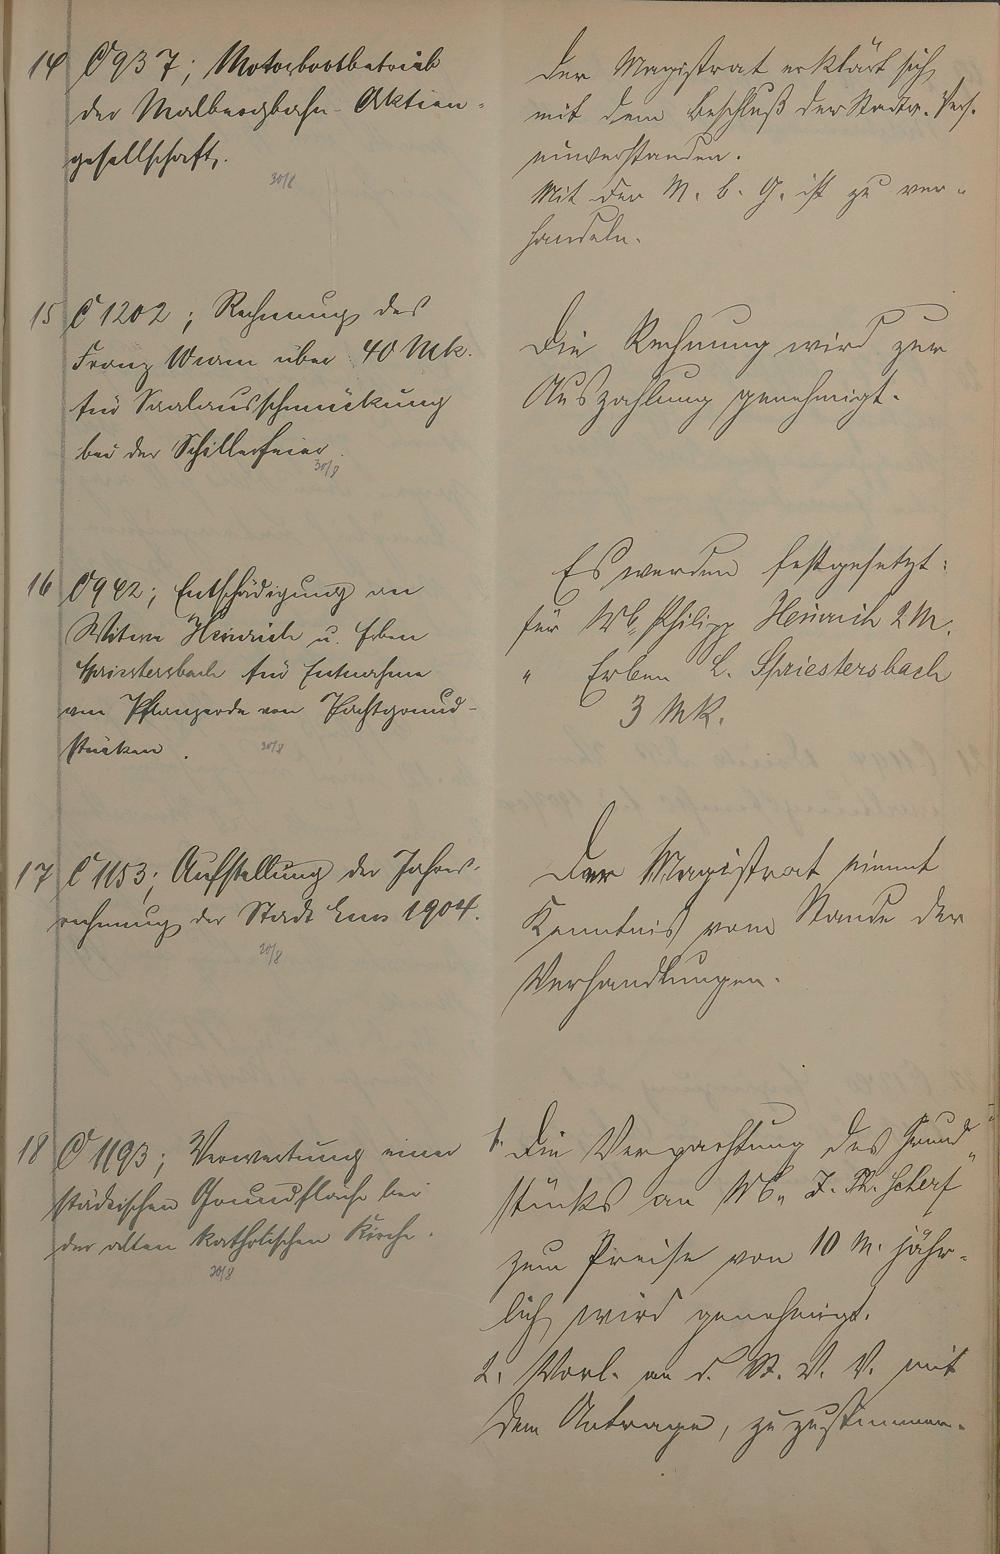 14 C 937; Motorbootbetrieb
der Malbergbahn-Aktien-
gesellschaft.
30/8
Der Magistrat erklärt sich
mit dem Beschluß der Stadtv. Vers.
einverstanden.
Mit der M. b. G. ist zu ver-
handeln.
15 C 1202; Rechnung des
Franz Wurm über 40 Mk.
für Saalausschmückung
bei der Schillerfeier.
30/8
Die Rechnung wird zur
Auszahlung genehmigt.
16 C 942; Entschädigung an
Witwe Heinrich u. Erben
Spriestersbach für Entnahme
von Pflanzerde von Pachtgrund-
stücken.
30/8
Es werden festgesetzt:
für Wb. Philipp Heinrich 2 M.
" Erben L. Spriestersbach
3 Mk.
17 C 1153; Aufstellung der Jahres-
rechnung der Stadt Ems 1904.
30/8
Der Magistrat nimmt
Kenntnis vom Stande der
Verhandlungen.
18 C 1193; Verwertung einer
städtischen Grundfläche bei
der alten katholischen Kirche.
30/8
1. Die Verpachtung des Grund-
stücks an Wb. J. Ph. Scherf
zum Preise von 10 M. jähr-
lich wird genehmigt.
2. Vorl. an d. St. V. V. mit
dem Antrage, zuzustimmen.